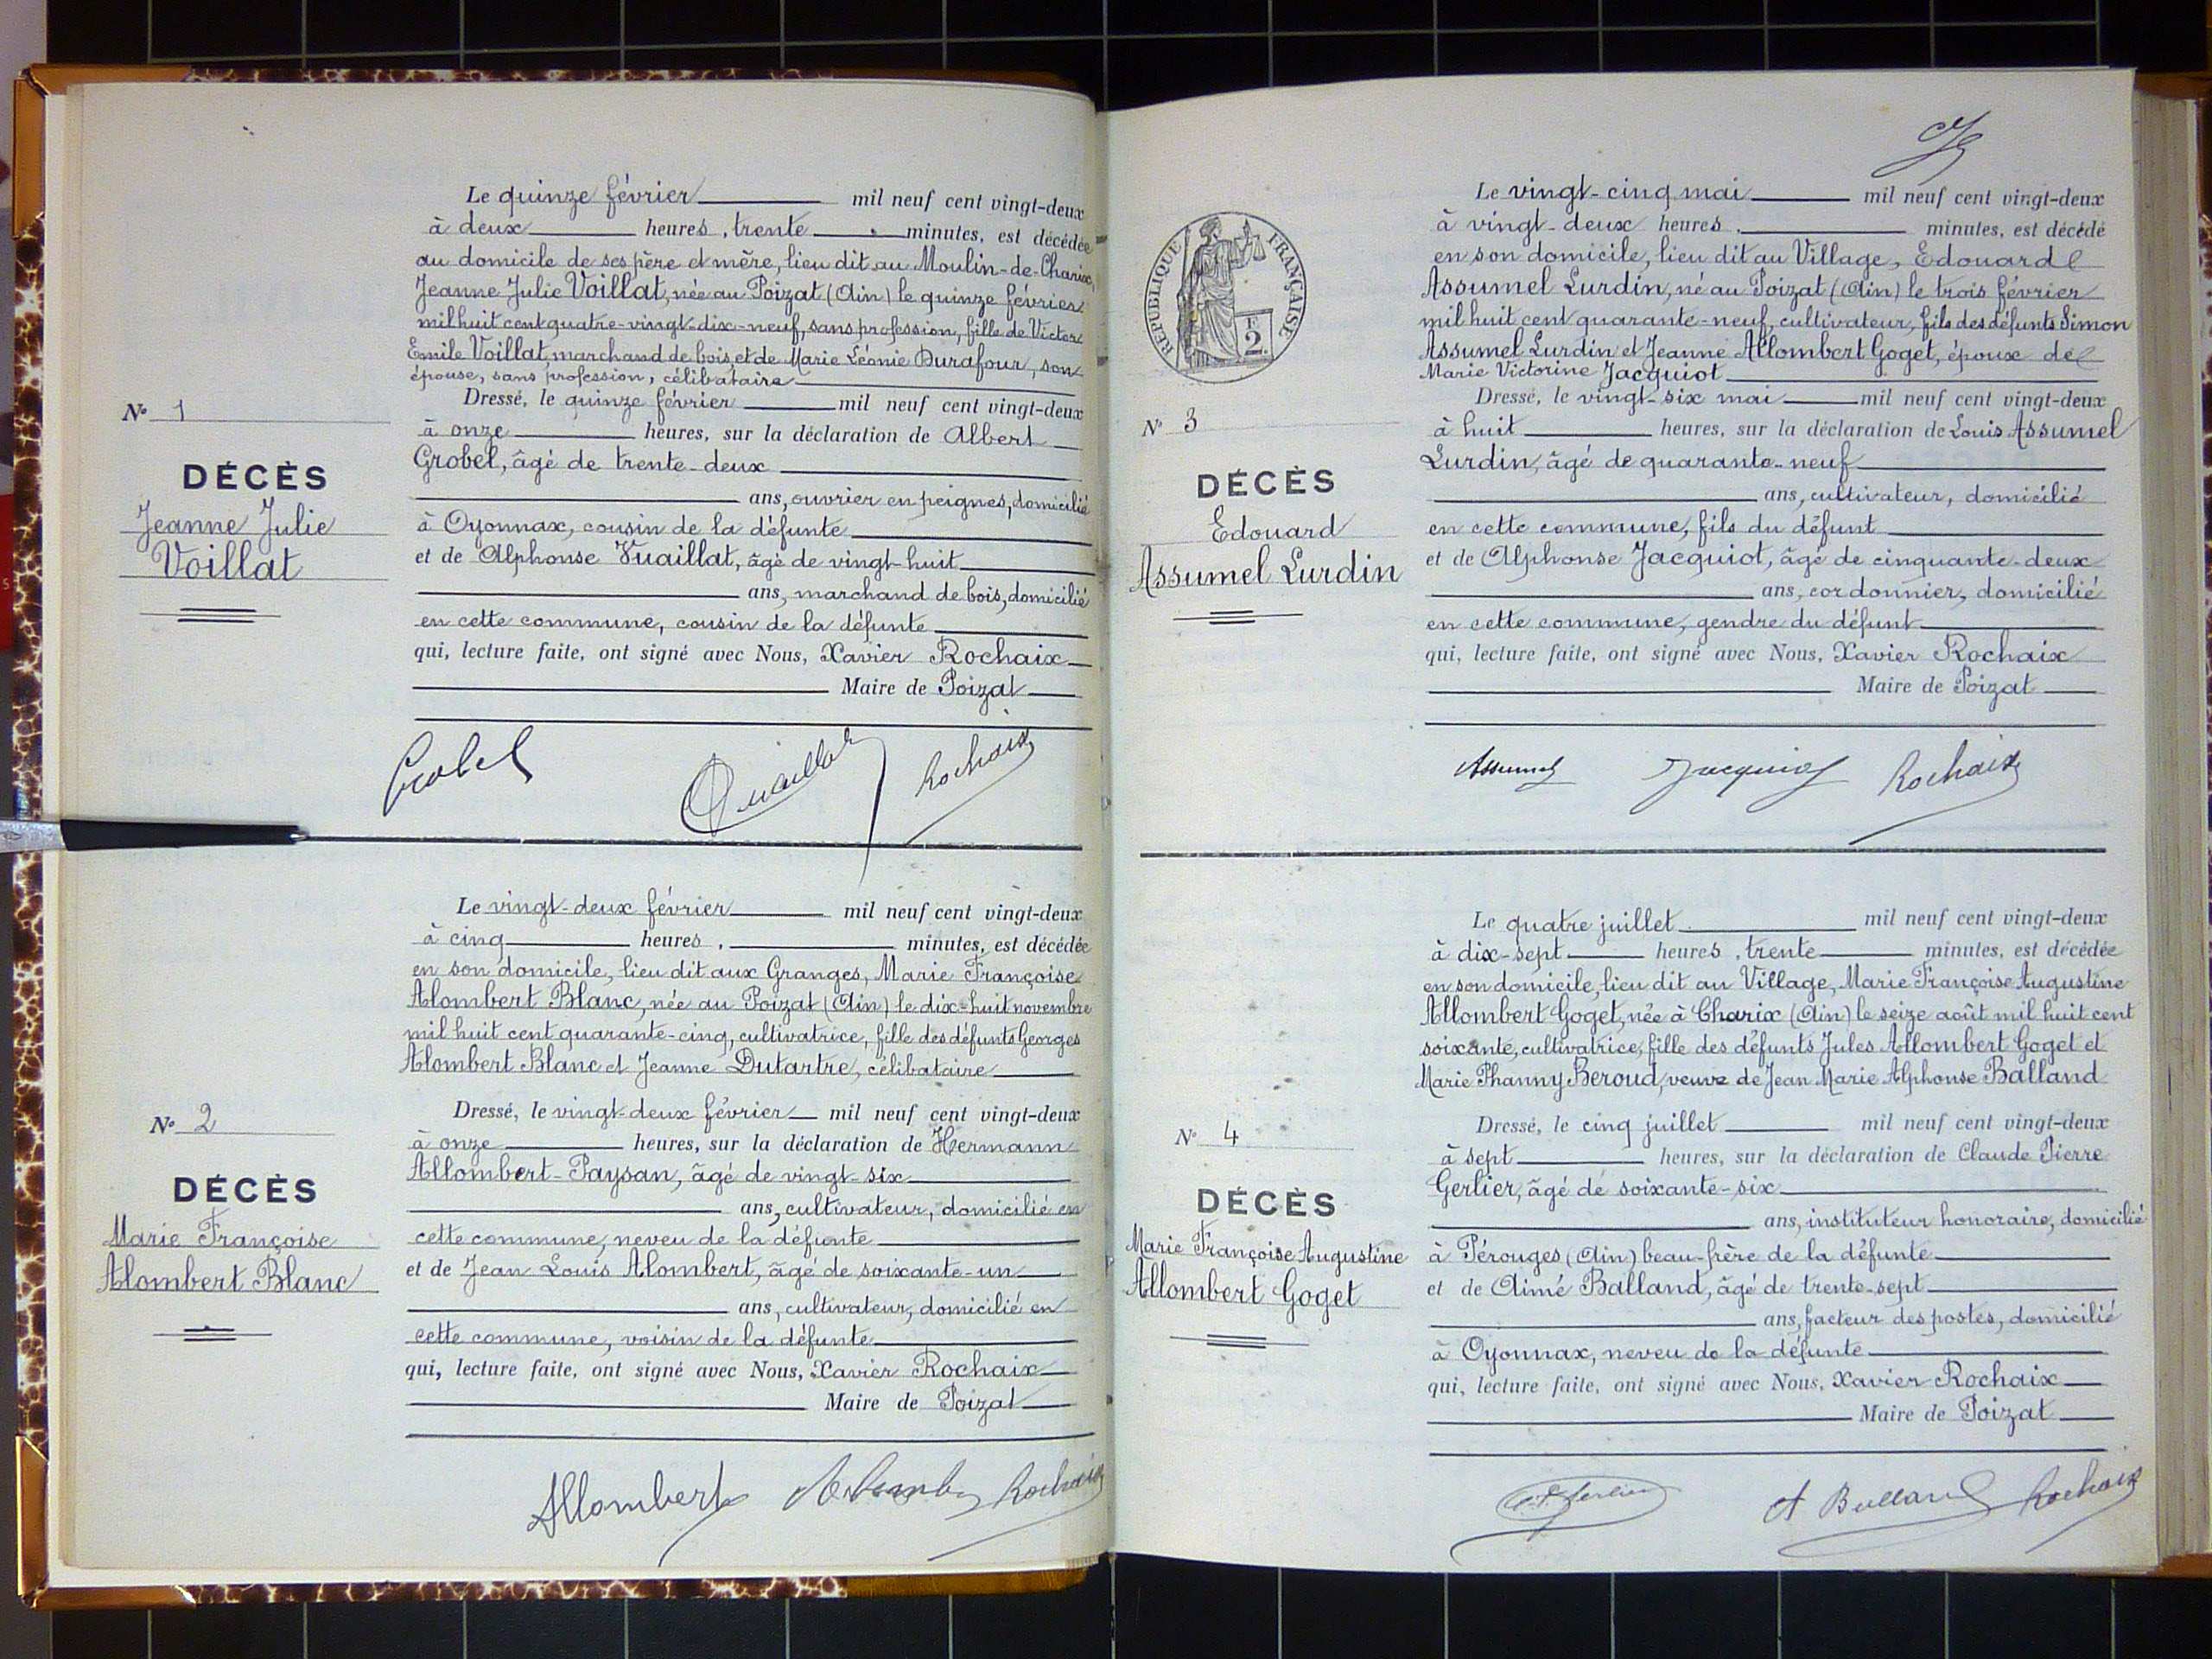 Le quinze février mil neuf cent vingt-deux
à deux heures, trente minutes, est décédée
au domicile de ses père et mère, lieu dit au Moulin-de-Charix,
Jeanne Julie Voillat, née au Poizat (Ain) le quinze février
mil huit cent quatre-vingt-dix-neuf, sans profession, fille de Victor
Emile Voillat, marchand de bois, et de Marie Léonie Durafour, son
épouse, sans profession, célibataire
Dressé, le quinze février mil neuf cent vingt-deux
N° 1
à onze heures, sur la déclaration de Albert
Grobel, âgé de trente-deux
DÉCÈS
ans, ouvrier en peignes, domicilié
Jeanne Julie
à Oyonnax, cousin de la défunte
Voillat
et de Alphonse Vuaillat, âgé de vingt-huit
ans, marchand de bois, domicilié
en cette commune, cousin de la défunte
qui, lecture faite, ont signé avec Nous, Xavier Rochaix
Maire de Poizat
Grobel Vuaillat Rochaix
Le vingt-deux février mil neuf cent vingt-deux
à cinq heures, minutes, est décédée
en son domicile, lieu dit aux Granges, Marie Françoise
Alombert Blanc, née au Poizat (Ain) le dix-huit novembre
mil huit cent quarante-cinq, cultivatrice, fille des défunts Georges
Alombert Blanc et Jeanne Dutartre, célibataire
Dressé, le vingt-deux février mil neuf cent vingt-deux
N° 2
à onze heures, sur la déclaration de Hermann
Allombert-Paysan, âgé de vingt-six
DÉCÈS
ans, cultivateur, domicilié en
Marie Françoise
cette commune, neveu de la défunte
Alombert Blanc
et de Jean Louis Alombert, âgé de soixante-un
ans, cultivateur, domicilié en
cette commune, voisin de la défunte
qui, lecture faite, ont signé avec Nous, Xavier Rochaix
Maire de Poizat
Allombert Rochaix
Le vingt-cinq mai mil neuf cent vingt-deux
à vingt-deux heures, minutes, est décédé
en son domicile, lieu dit au Village, Edouard
Assumel Lurdin, né au Poizat (Ain) le trois février
mil huit cent quarante-neuf, cultivateur, fils des défunts Simon
Assumel Lurdin et Jeanne Allombert Goget, époux de
Marie Victorine Jacquiot
RÉPUBLIQUE FRANÇAISE
F.
2.
Dressé, le vingt-six mai mil neuf cent vingt-deux
N° 3
à huit heures, sur la déclaration de Louis Assumel
Lurdin, âgé de quarante-neuf
DÉCÈS
ans, cultivateur, domicilié
Edouard
en cette commune, fils du défunt
Assumel Lurdin
et de Alphonse Jacquiot, âgé de cinquante-deux
ans, cordonnier, domicilié
en cette commune, gendre du défunt
qui, lecture faite, ont signé avec Nous, Xavier Rochaix
Maire de Poizat
Assumel Jacquiot Rochaix
Le quatre juillet mil neuf cent vingt-deux
à dix-sept heures, trente minutes, est décédée
en son domicile, lieu dit au Village, Marie Françoise Augustine
Allombert Goget, née à Charix (Ain) le seize août mil huit cent
soixante, cultivatrice, fille des défunts Jules Allombert Goget et
Marie Phanny Beroud, veuve de Jean Marie Alphonse Balland
Dressé, le cinq juillet mil neuf cent vingt-deux
N° 4
à sept heures, sur la déclaration de Claude Pierre
Gerlier, âgé de soixante-six
DÉCÈS
ans, instituteur honoraire, domicilié
Marie Françoise Augustine
à Pérouges (Ain) beau-frère de la défunte
Allombert Goget
et de Aimé Balland, âgé de trente-sept
ans, facteur des postes, domicilié
à Oyonnax, neveu de la défunte
qui, lecture faite, ont signé avec Nous, Xavier Rochaix
Maire de Poizat
C.P. Gerlier A Balland Rochaix